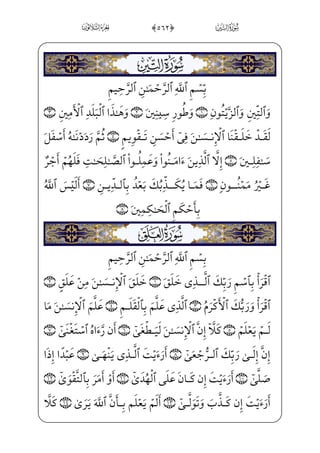 سُورَةُ التِّينِ ﴿٥٦٢﴾ الجُزْءُ الثَّلَاثُونَ
سُورَةُ التِّينِ
بِسْمِ ٱللَّهِ ٱلرَّحْمَٰنِ ٱلرَّحِيمِ
وَٱلتِّينِ وَٱلزَّيْتُونِ ۝١ وَطُورِ سِينِينَ ۝٢ وَهَٰذَا ٱلْبَلَدِ ٱلْأَمِينِ ۝٣
لَقَدْ خَلَقْنَا ٱلْإِنسَٰنَ فِىٓ أَحْسَنِ تَقْوِيمٍ ۝٤ ثُمَّ رَدَدْنَٰهُ أَسْفَلَ
سَٰفِلِينَ ۝٥ إِلَّا ٱلَّذِينَ ءَامَنُوا۟ وَعَمِلُوا۟ ٱلصَّٰلِحَٰتِ فَلَهُمْ أَجْرٌ
غَيْرُ مَمْنُونٍ ۝٦ فَمَا يُكَذِّبُكَ بَعْدُ بِٱلدِّينِ ۝٧ أَلَيْسَ ٱللَّهُ
بِأَحْكَمِ ٱلْحَٰكِمِينَ ۝٨
سُورَةُ العَلَقِ
بِسْمِ ٱللَّهِ ٱلرَّحْمَٰنِ ٱلرَّحِيمِ
ٱقْرَأْ بِٱسْمِ رَبِّكَ ٱلَّذِى خَلَقَ ۝١ خَلَقَ ٱلْإِنسَٰنَ مِنْ عَلَقٍ ۝٢
ٱقْرَأْ وَرَبُّكَ ٱلْأَكْرَمُ ۝٣ ٱلَّذِى عَلَّمَ بِٱلْقَلَمِ ۝٤ عَلَّمَ ٱلْإِنسَٰنَ مَا
لَمْ يَعْلَمْ ۝٥ كَلَّآ إِنَّ ٱلْإِنسَٰنَ لَيَطْغَىٰٓ ۝٦ أَن رَّءَاهُ ٱسْتَغْنَىٰٓ ۝٧
إِنَّ إِلَىٰ رَبِّكَ ٱلرُّجْعَىٰٓ ۝٨ أَرَءَيْتَ ٱلَّذِى يَنْهَىٰ ۝٩ عَبْدًا إِذَا
صَلَّىٰٓ ۝١٠ أَرَءَيْتَ إِن كَانَ عَلَى ٱلْهُدَىٰٓ ۝١١ أَوْ أَمَرَ بِٱلتَّقْوَىٰٓ ۝١٢
أَرَءَيْتَ إِن كَذَّبَ وَتَوَلَّىٰٓ ۝١٣ أَلَمْ يَعْلَم بِأَنَّ ٱللَّهَ يَرَىٰ ۝١٤ كَلَّا